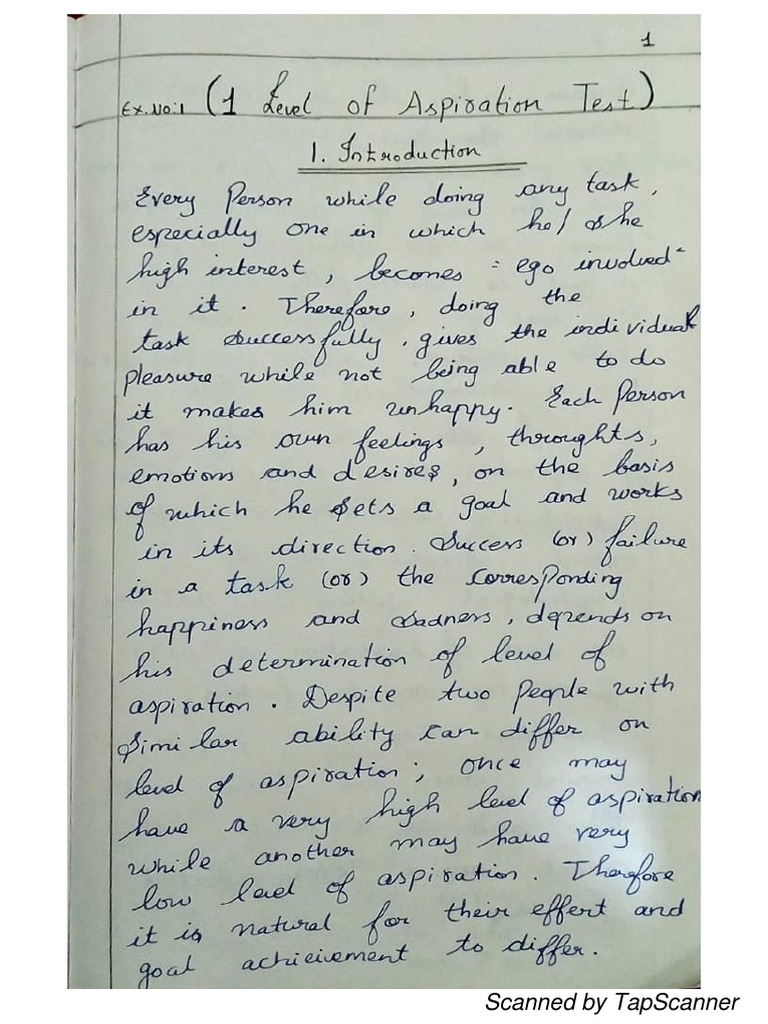 1
Ex.No:1 (1 Level of Aspiration Test)
1. Introduction
Every Person while doing any task,
especially one in which he/she
high interest, becomes "ego involved"
in it. Therefore, doing the
task successfully, gives the individual
pleasure while not being able to do
it makes him unhappy. Each Person
has his own feelings, throughts,
emotions and desires, on the basis
of which he sets a goal and works
in its direction. Success (or) failure
in a task (or) the corresponding
happiness and sadness, depends on
his determination of level of
aspiration. Despite two people with
similar ability can differ on
level of aspiration; once may
have a very high level of aspiration
while another may have very
low level of aspiration. Therefore
it is natural for their effert and
goal achieiement to differ.
Scanned by TapScanner